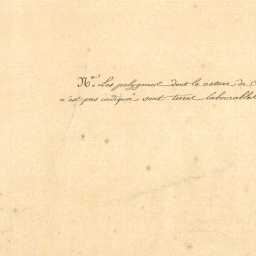 Nª. Les polygones dont la nature de c
n'est pas indiquée sont terre labourable